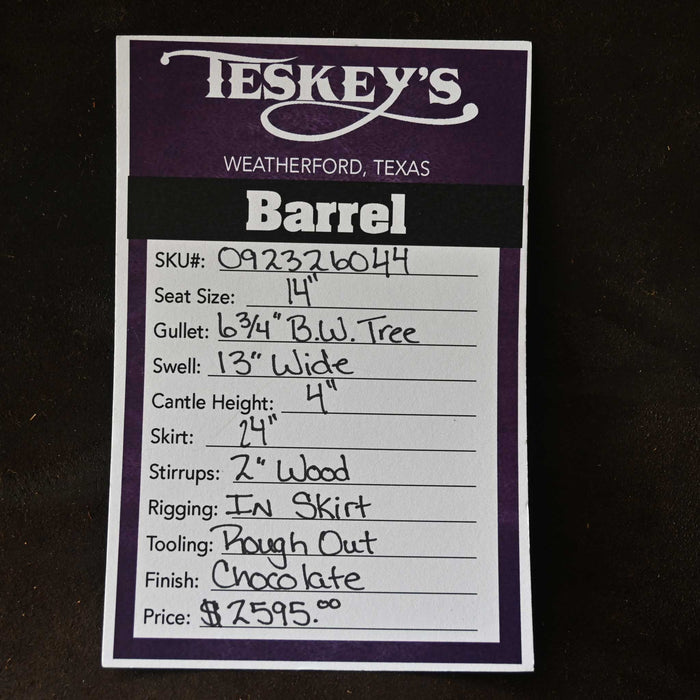 TESKEY'S
WEATHERFORD, TEXAS
Barrel
SKU#: 092326044
Seat Size: 14"
Gullet: 6 3/4" B.W. Tree
Swell: 13" Wide
Cantle Height: 4"
Skirt: 24"
Stirrups: 2" Wood
Rigging: IN Skirt
Tooling: Rough Out
Finish: Chocolate
Price: $2595.00